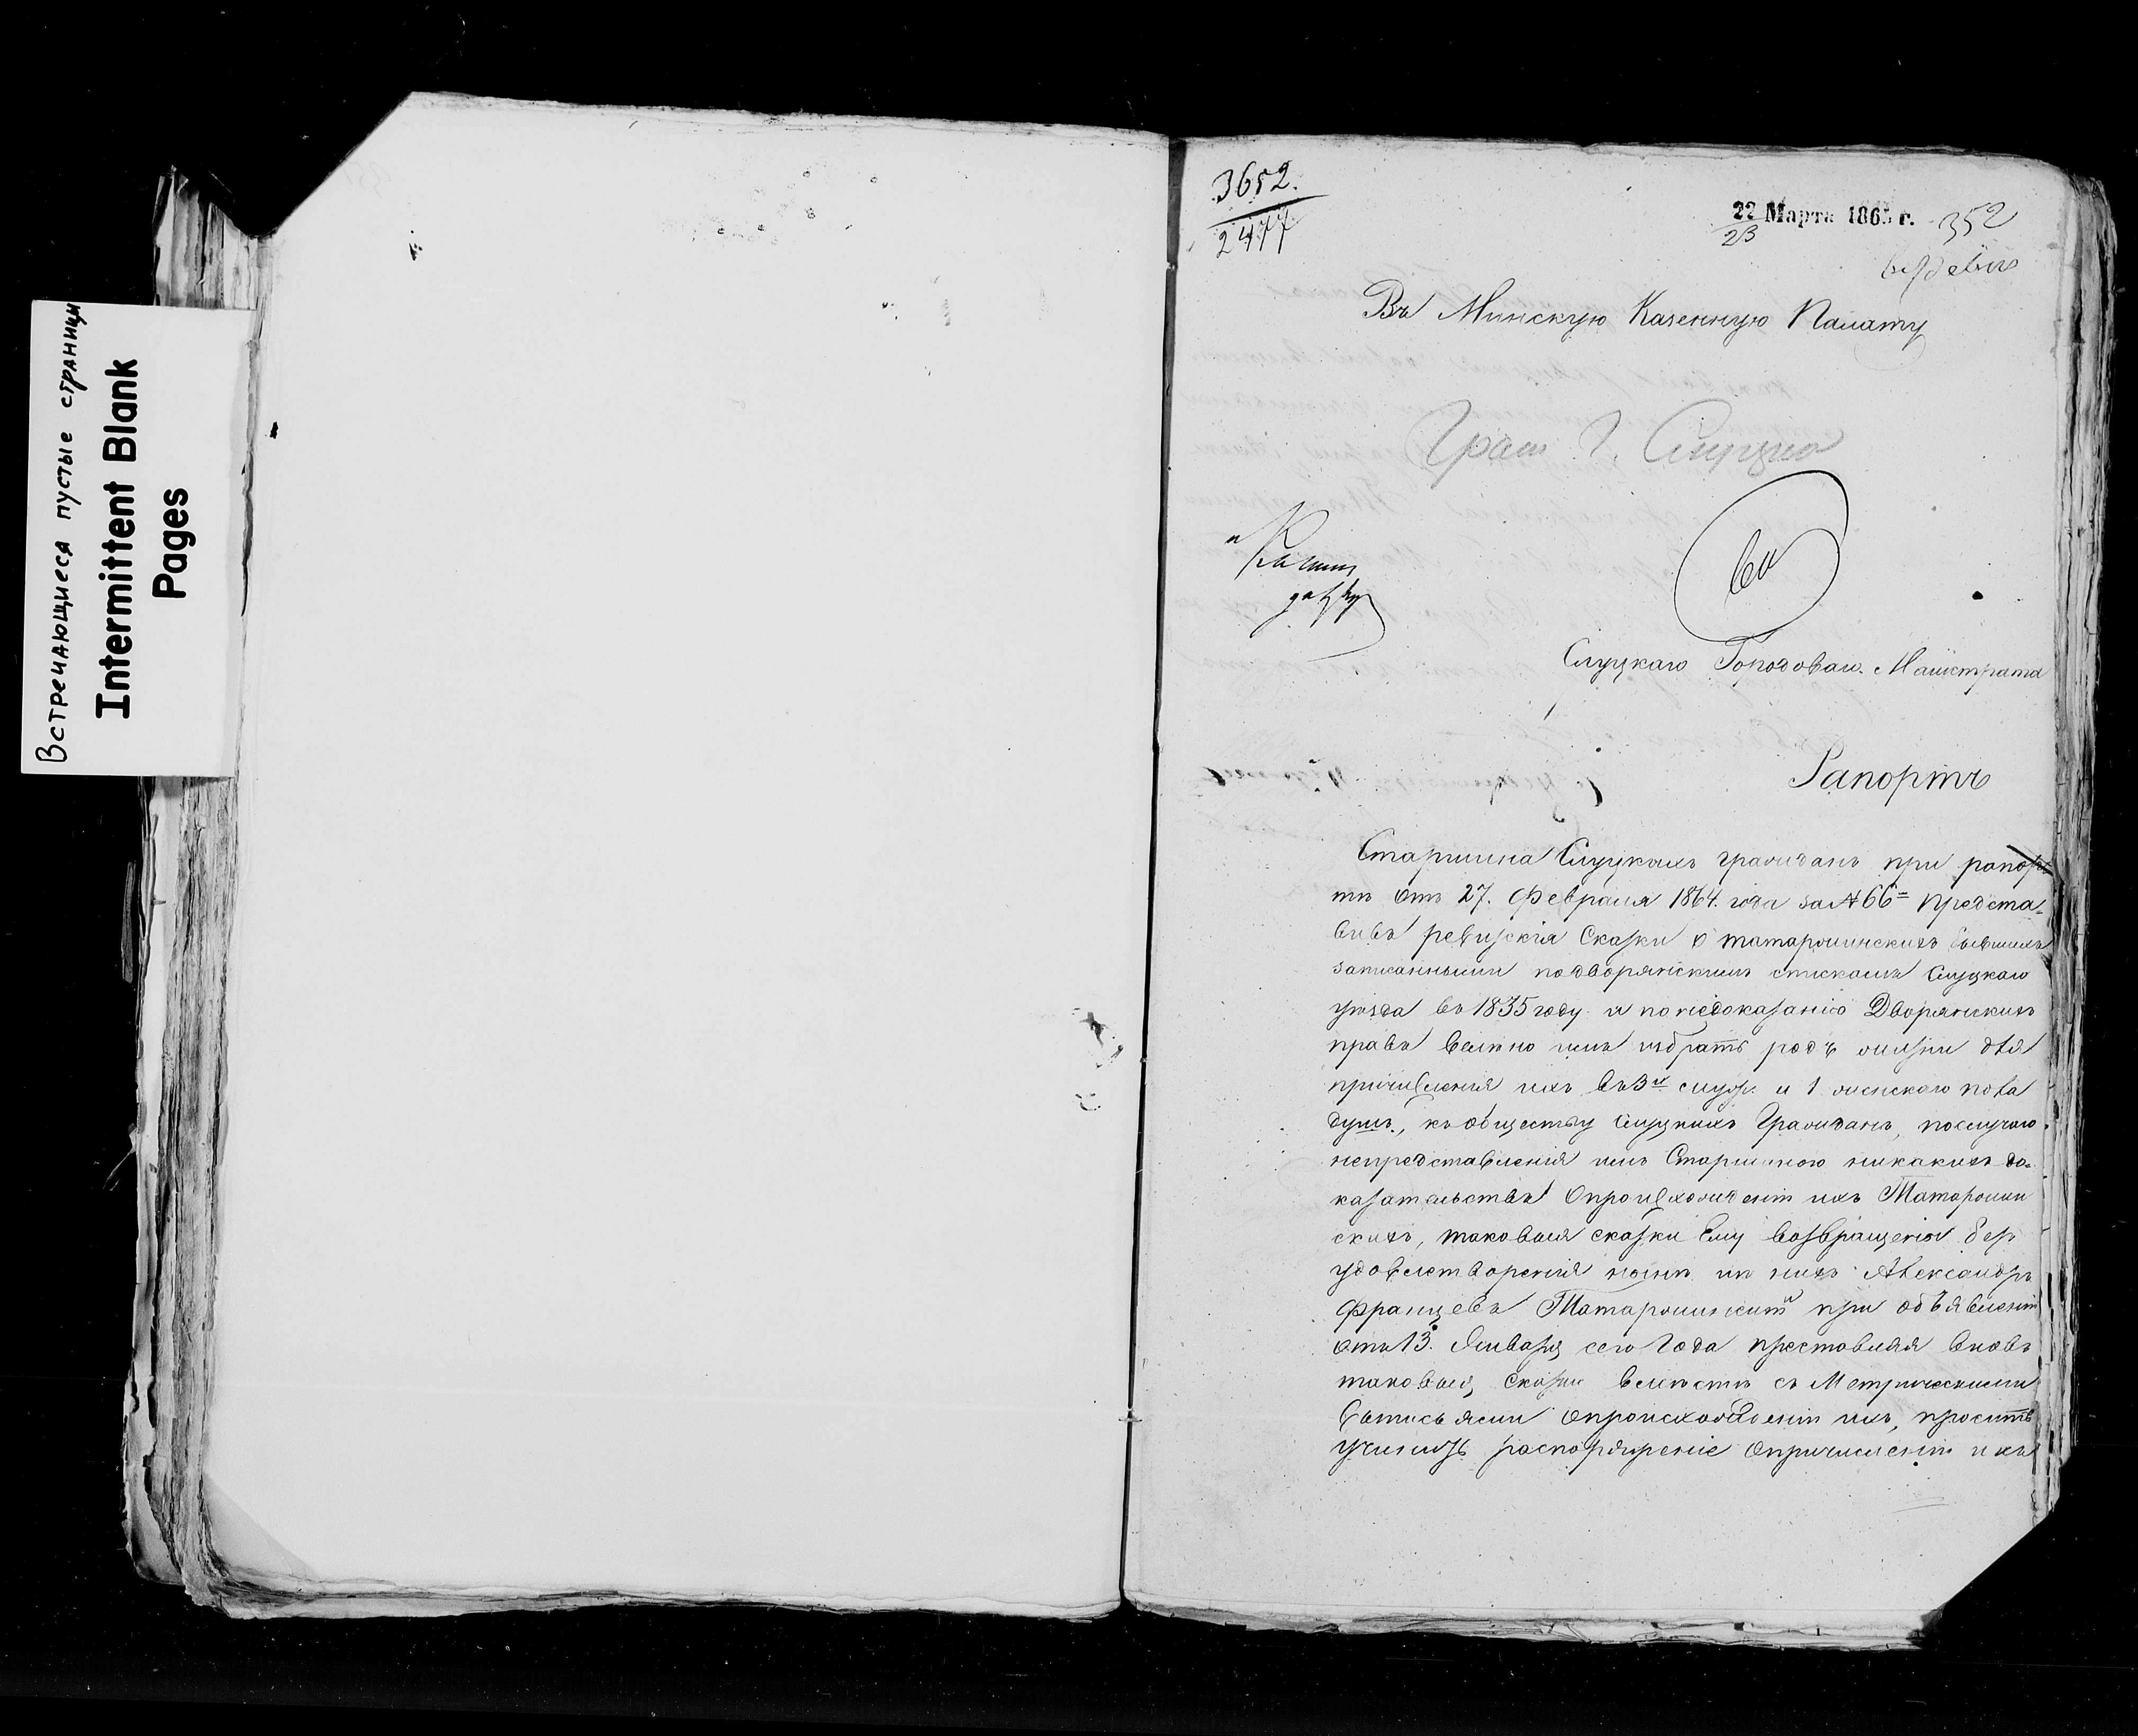 Встречающиеся пустые страницы
Intermittent Blank
Pages
3652.
2477
22 Марта 1865 г. 352
23
Въ Минскую Казенную Палату
Граж Г. Слуцка
Слуцкаго Городоваго Магистрата
Рапортъ
Старшина Слуцкихъ гражданъ при рапор
тѣ отъ 27. Февраля 1864. года за № 66 = предста-
вивъ ревизскія Сказки о татаржинскихъ бывшихъ
записанными подворянскимъ спискамъ Слуцкаго
уѣзда въ 1835 году и по недоказанію Дворянскихъ
правъ велѣно имъ избрать родъ жизни для
причисленія ихъ въ 3х муж. и 1 женскаго пола
душъ, къ обществу Слуцкихъ Гражданъ, послучаю
непредставленія имъ Старшиною никакихъ до-
казательствъ О происхожденіи ихъ Татаржин
скихъ, таковыя сказки Ему возвращены безъ
удовлетворенія нынѣ изъ нихъ Александръ
Францевъ Татаржинскій при объявленіи
отъ 13. Января сего Года представляя вновь
таковыя Сказки вмѣстѣ съ Метрическими
Выписьями о происхожденіи ихъ, проситъ
учинить распоряженіе о причисленіи ихъ